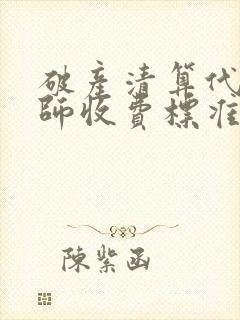 破産清算代
師收費標准
陳紫函